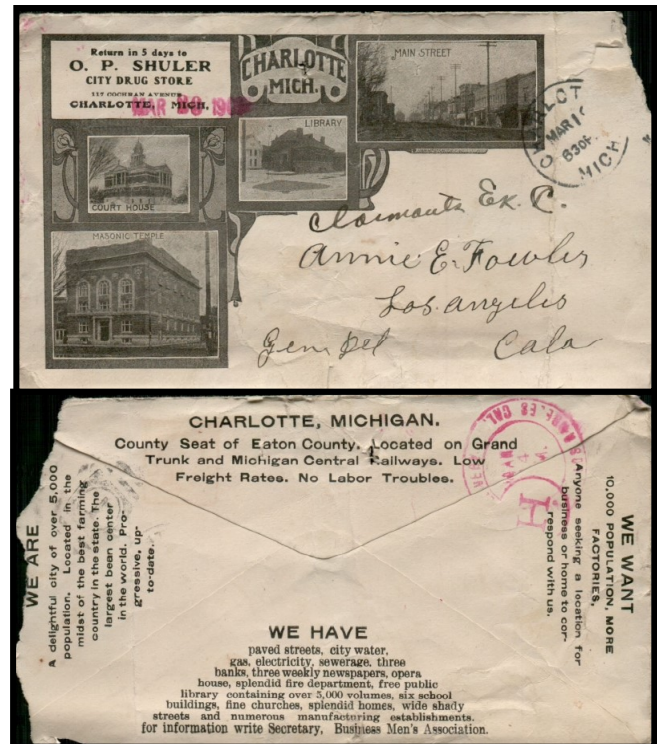 Return in 5 days to
O. P. SHULER
CITY DRUG STORE
117 COCHRAN AVENUE
CHARLOTTE, MICH.
MAR 20
CHARLOTTE
MICH.
MAIN STREET
LIBRARY
COURT HOUSE
MASONIC TEMPLE
CHARLOT
MAR 1
630P
MICH
Ex. C.
Annie E. Fowler
Los Angeles
Gen Del
Cala
CHARLOTTE, MICHIGAN.
County Seat of Eaton County. Located on Grand
Trunk and Michigan Central Railways. Low
Freight Rates. No Labor Troubles.
WE ARE
A delightful city of over 5,000
population. Located in the
midst of the best farming
country in the state. The
largest bean center
in the world. Pro-
gressive, up-
to-date.
WE WANT
10,000 POPULATION, MORE
FACTORIES,
Anyone seeking a location for
business or home to cor-
respond with us.
CAL.
H
WE HAVE
paved streets, city water,
gas, electricity, sewerage. three
banks, three weekly newspapers, opera
house, splendid fire department, free public
library containing over 5,000 volumes, six school
buildings, fine churches, splendid homes, wide shady
streets and numerous manufacturing establishments.
for information write Secretary, Business Men's Association.